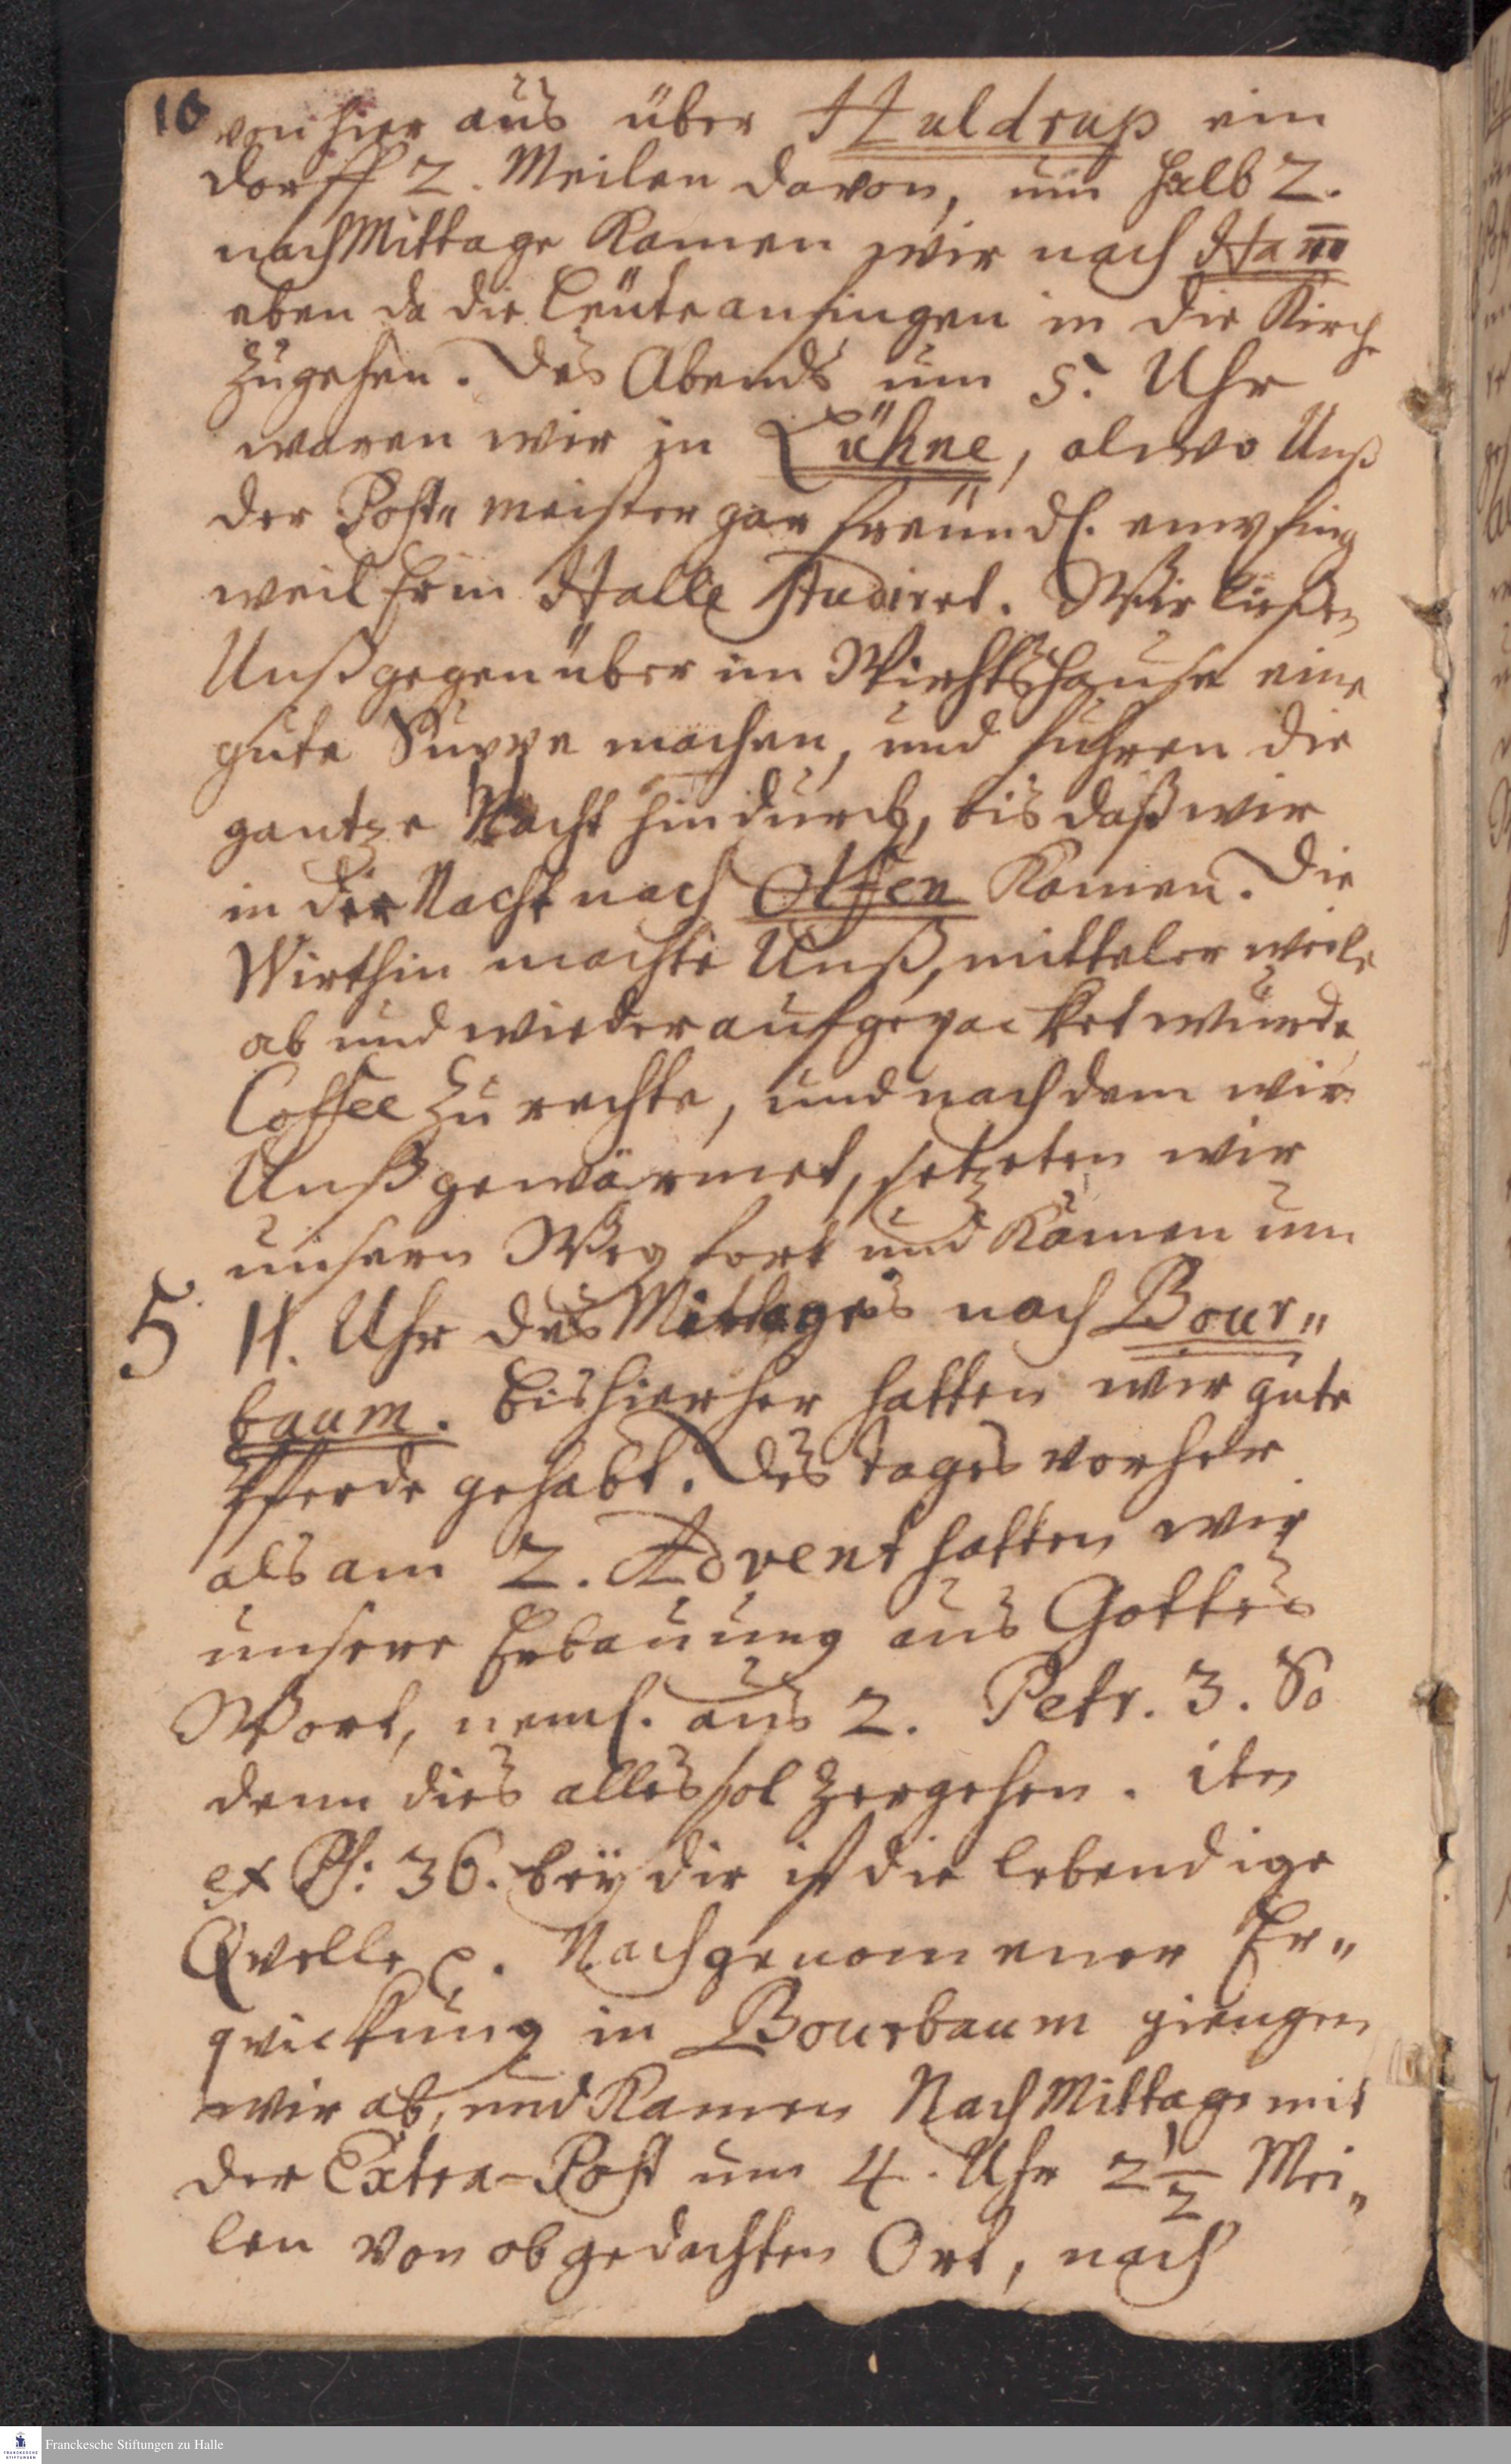 10
von hier aus über Huldrup ein
dorff 2. Meilen davon, um halb 2.
nachMittage Kamen wir nach Ham̅
eben da die Leüte anfingen in die Kirche
zugehen. Des Abends um 5. Uhr
waren wir in Lühne, alwo Unß
der Post„ meister gar freündl. empfing
weil Er in Halle studiret. Wir ließen
Unß gegenüber im Wirthshause eine
gute Suppe machen, und fuhren die
gantze Nacht hindurch, bis daß wir
in der Nacht nach Olfen Kamen. Die
Wirthin machte Unß, mitteler weile
ab und wieder aufgepacket wurde
Coffee zu rechte, und nach dem wir
Unß gewärmet, setzeten wir
unsern Weg fort und Kamen um
5 11. Uhr des Mittages nach Bour„
baum. Bis hierher hatten wir gute
Pferde gehabt. Des tages vorher
als am 2. Advent hatten wir
unsere Erbauung aus Gottes
Wort, neml. aus 2. Petr. 3. So
denn dies alles sol zergehen. iten
ex Ps: 36. beÿ dir ist die lebendige
Qvelle p. Nach genommener Er„
qvickung in Bourbaum giengen
wir ab, und Kamen NachMittage mit
der Extra-Post um 4. Uhr 2 1/2 Mei„
len von obgedachten Ort, nach
Franckesche Stiftungen zu Halle